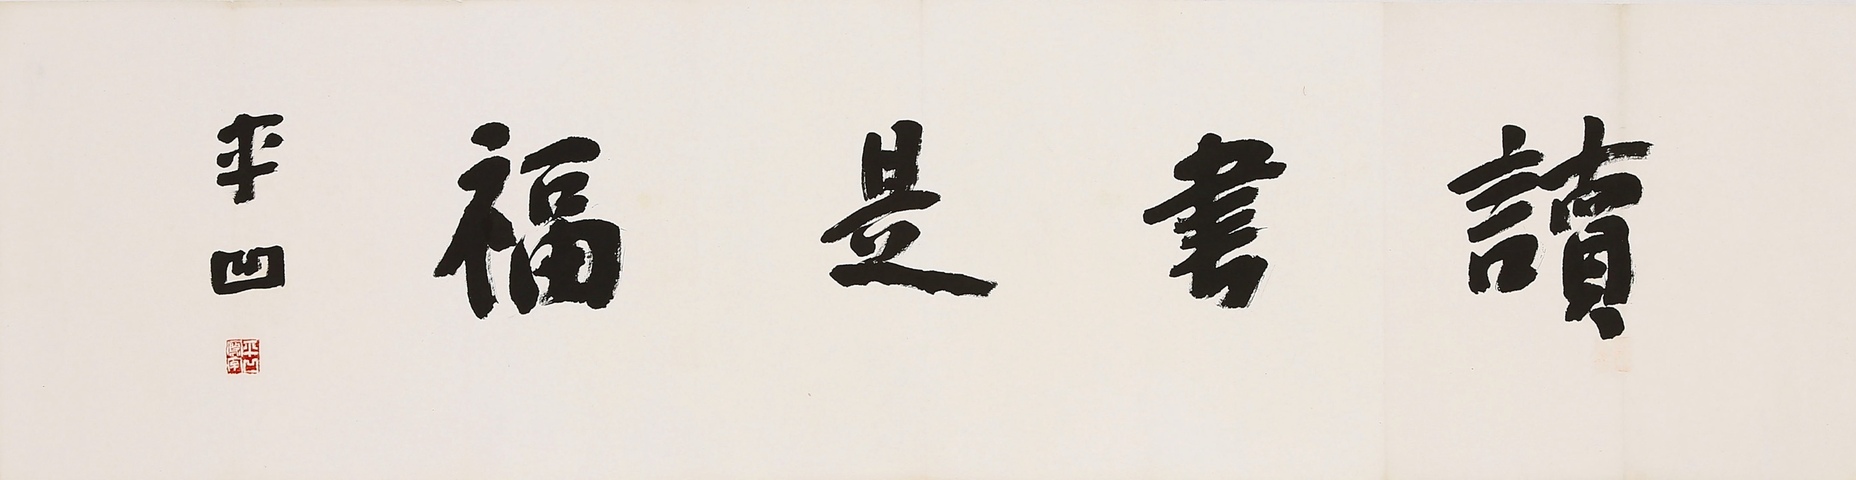 讀書是福
平凹